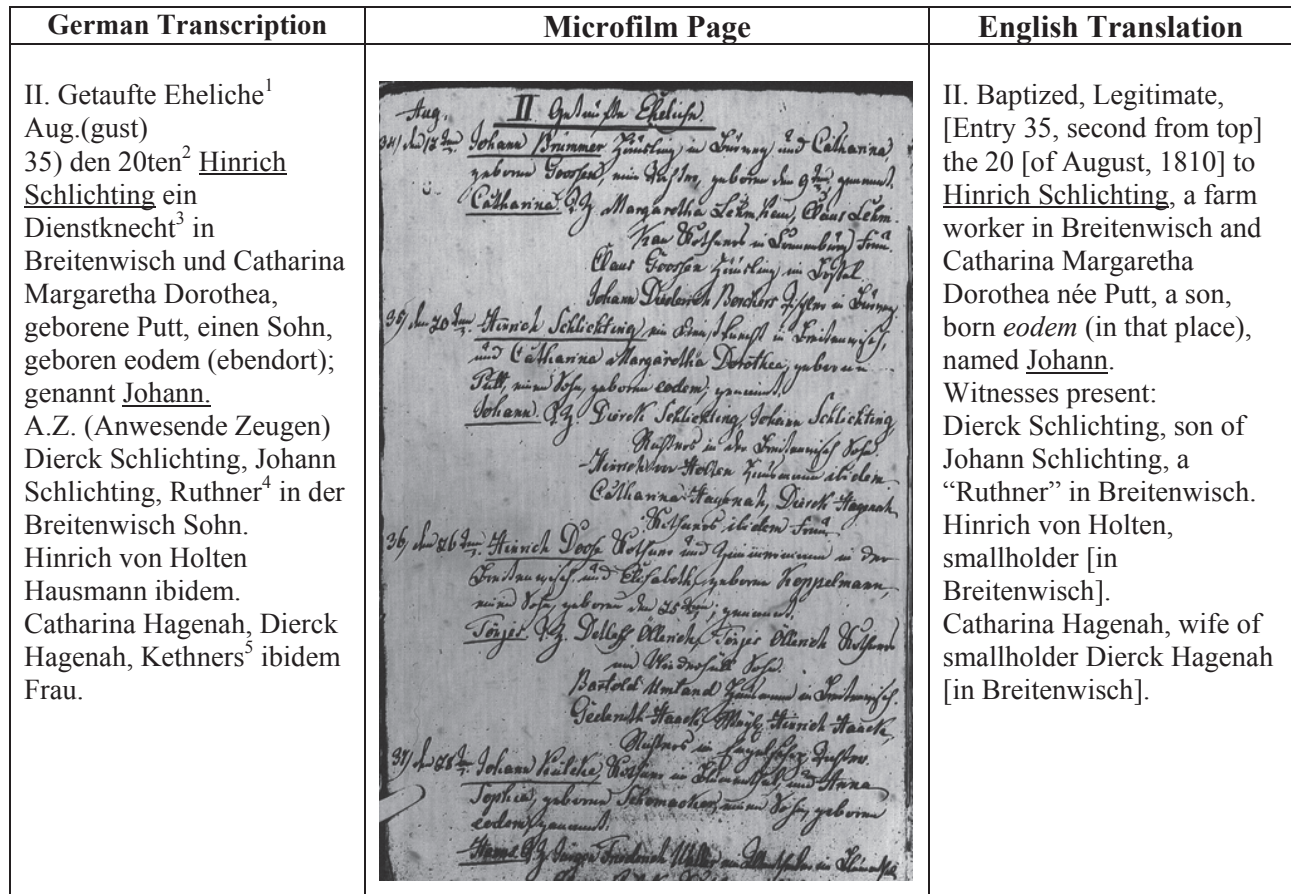 German Transcription
II. Getaufte Eheliche¹
Aug.(gust)
35) den 20ten² Hinrich
Schlichting ein
Dienstknecht³ in
Breitenwisch und Catharina
Margaretha Dorothea,
geborene Putt, einen Sohn,
geboren eodem (ebendort);
genannt Johann.
A.Z. (Anwesende Zeugen)
Dierck Schlichting, Johann
Schlichting, Ruthner⁴ in der
Breitenwisch Sohn.
Hinrich von Holten
Hausmann ibidem.
Catharina Hagenah, Dierck
Hagenah, Kethners⁵ ibidem
Frau.
Microfilm Page
Aug. II Getaufte Eheliche.
34) den Johann Brümmer Häusling in und Catharina
geborne Goossen, eine Tochter, geboren den 9ten genannt.
Catharina. Margaretha Lehmkau, Claus Lehm-
kau Köthners in Frau.
Claus Goossen Häusling in
Johann Diederich Borchers in
35) den 20ten Hinrich Schlichting, ein Dienstknecht in Breitenwisch,
und Catharina Margaretha Dorothea, geborene
Putt, einen Sohn, geboren eodem, genannt.
Johann. Dierck Schlichting, Johann Schlichting
in der Breitenwisch Sohn.
Hinrich von Holten Hausmann ibidem
Catharina Hagenah, Dierck Hagenah
Köthners ibidem Frau
36) den 26ten Hinrich Doose Köthner und Zimmermann in der
Breitenwisch und Elisabeth, geborne Koppelmann,
einen Sohn, geboren den 25ten; genannt.
Tönjes Detleff Ölerich, Tönjes Ölerich Köthners
Sohn.
Bartold Umland Hausmann in Breitenwisch.
Hinrich Haack,
in Tochter.
37) den 28ten Johann Köthner in Blumenthal, und Anna
Sophia, geborne Schomacker, einen Sohn, geboren
eodem, genannt.
Jürgen Friederich in
English Translation
II. Baptized, Legitimate,
[Entry 35, second from top]
the 20 [of August, 1810] to
Hinrich Schlichting, a farm
worker in Breitenwisch and
Catharina Margaretha
Dorothea née Putt, a son,
born eodem (in that place),
named Johann.
Witnesses present:
Dierck Schlichting, son of
Johann Schlichting, a
“Ruthner” in Breitenwisch.
Hinrich von Holten,
smallholder [in
Breitenwisch].
Catharina Hagenah, wife of
smallholder Dierck Hagenah
[in Breitenwisch].